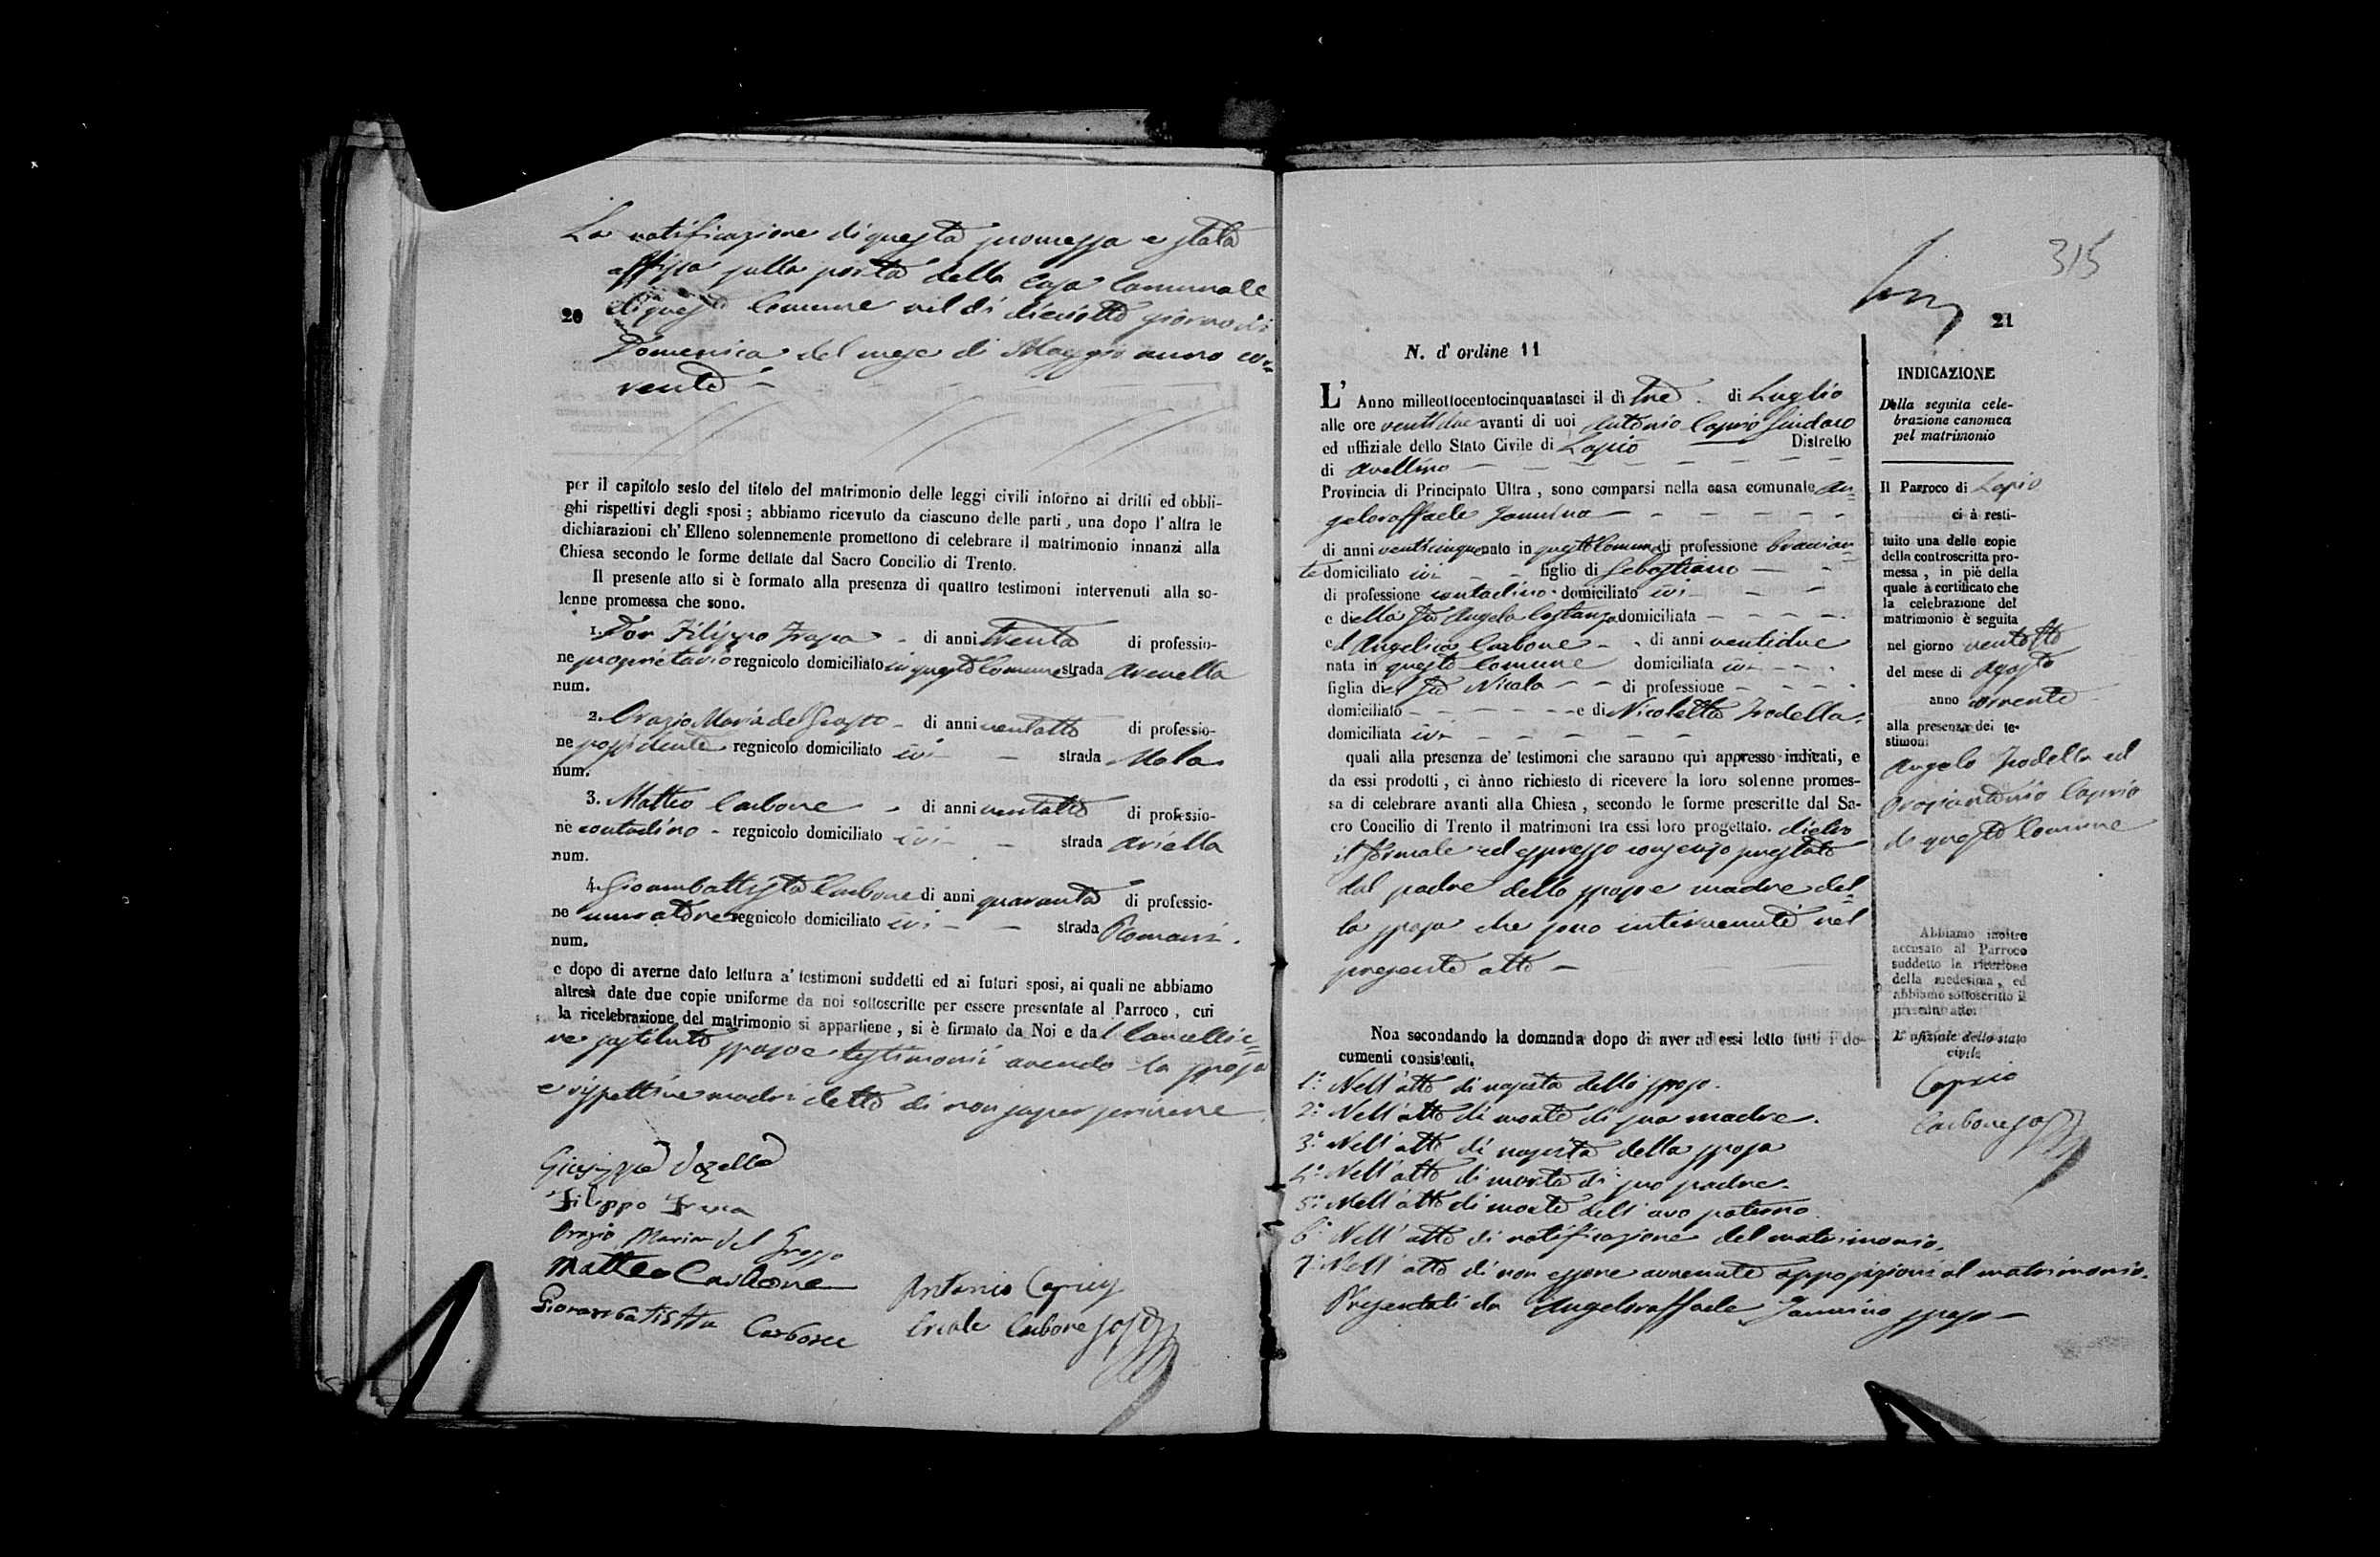 La notificazione di questa promessa e stata
affissa sulla porta della Casa Comunale
20 di questo Comune nel di dieciotto giorno di
Domenica del mese di Maggio anno cor=
rente
per il capitolo sesto del titolo del matrimonio delle leggi civili intorno ai dritti ed obbli-
ghi rispettivi degli sposi ; abbiamo ricevuto da ciascuno delle parti , una dopo l' altra le
dichiarazioni ch' Elleno solennemente promettono di celebrare il matrimonio innanzi alla
Chiesa secondo le forme dettate dal Sacro Concilio di Trento.
Il presente atto si è formato alla presenza di quattro testimoni intervenuti alla so-
lenne promessa che sono.
1. Don Filippo - di anni trenta di professio-
ne proprietario regnicolo domiciliato in questo Comune strada Arenella
num.
2. Orazio Maria del Grosso - di anni ventotto di professio-
ne possidente regnicolo domiciliato ivi - strada Mola
num.
3. Matteo Carbone - di anni ventotto di professio-
ne contadino - regnicolo domiciliato ivi - strada Ariella
num.
4. Gioambattista Carbone di anni quaranta di professio-
ne muratore regnicolo domiciliato ivi - strada Romani.
num.
e dopo di averne dato lettura a' testimoni suddetti ed ai futuri sposi, ai quali ne abbiamo
altresì date due copie uniforme da noi sottoscritte per essere presentate al Parroco , cui
la ricelebrazione del matrimonio si appartiene , si è firmato da Noi e dal Cancellie=
re sostituto sposo e testimonii avendo la sposa
e rispettive madri detto di non saper scrivere
Giuseppe
Filippo
Orazio Maria del Grosso
Matteo Carbone
Giovambatista Carbone
Antonio Caprio
Ercole Carbone Sost
315
21
N. d' ordine 11
L' Anno milleottocentocinquantasei il dì tre di Luglio
alle ore ventidue avanti di noi Antonio Caprio Sindaco
ed uffiziale dello Stato Civile di Lapio Distretto
di Avellino
Provincia di Principato Ultra , sono comparsi nella casa comunale An=
geloraffaele Iannino
di anni venticinque nato in questo Comune di professione braccian=
te domiciliato ivi figlio di Sebastiano
di professione contadino domiciliato ivi
e di della fu Angela Costanza domiciliata
ed Angelica Carbone di anni ventidue
nata in questo Comune domiciliata ivi
figlia di fu Nicola di professione
domiciliato e di Nicoletta Trodella
domiciliata ivi
quali alla presenza de' testimoni che saranno quì appresso indicati, e
da essi prodotti , ci ànno richiesto di ricevere la loro solenne promes-
sa di celebrare avanti alla Chiesa , secondo le forme prescritte dal Sa-
cro Concilio di Trento il matrimoni tra essi loro progettato. dietro
il formale ed espresso consenso prestato
dal padre dello sposo e madre del=
la sposa che sono intervenuti nel
presente atto
Noa secondando la domanda dopo di aver ad essi letto tutti i do-
cumenti consistenti.
1.° Nell' atto di nascita dello sposo.
2.° Nell' atto di morte di sua madre.
3.° Nell' atto di nascita della sposa
4.° Nell' atto di morte di suo padre.
5.° Nell' atto di morte dell' avo paterno
6.° Nell' atto di notificazione del matrimonio.
7.° Nell' atto di non essere avvenute opposizioni al matrimonio.
Presentati da Angeloraffaele Iannino sposo
INDICAZIONE
Della seguita cele-
brazione canonica
pel matrimonio
Il Parroco di Lapio
ci à resti-
tuito una delle copie
della controscritta pro-
messa , in piè della
quale à certificato che
la celebrazione del
matrimonio è seguita
nel giorno ventotto
del mese di Agosto
anno corrente
alla presenza dei te-
stimoni
Angelo Trodella ed
Oraziantonio Caprio
di questo Comune
Abbiamo inoltre
accusato al Parroco
suddetto la ricezione
della medesima , ed
abbiamo sottoscritto il
presente atto.
L' ufiziale dello stato
civile
Caprio
Carbone Sost